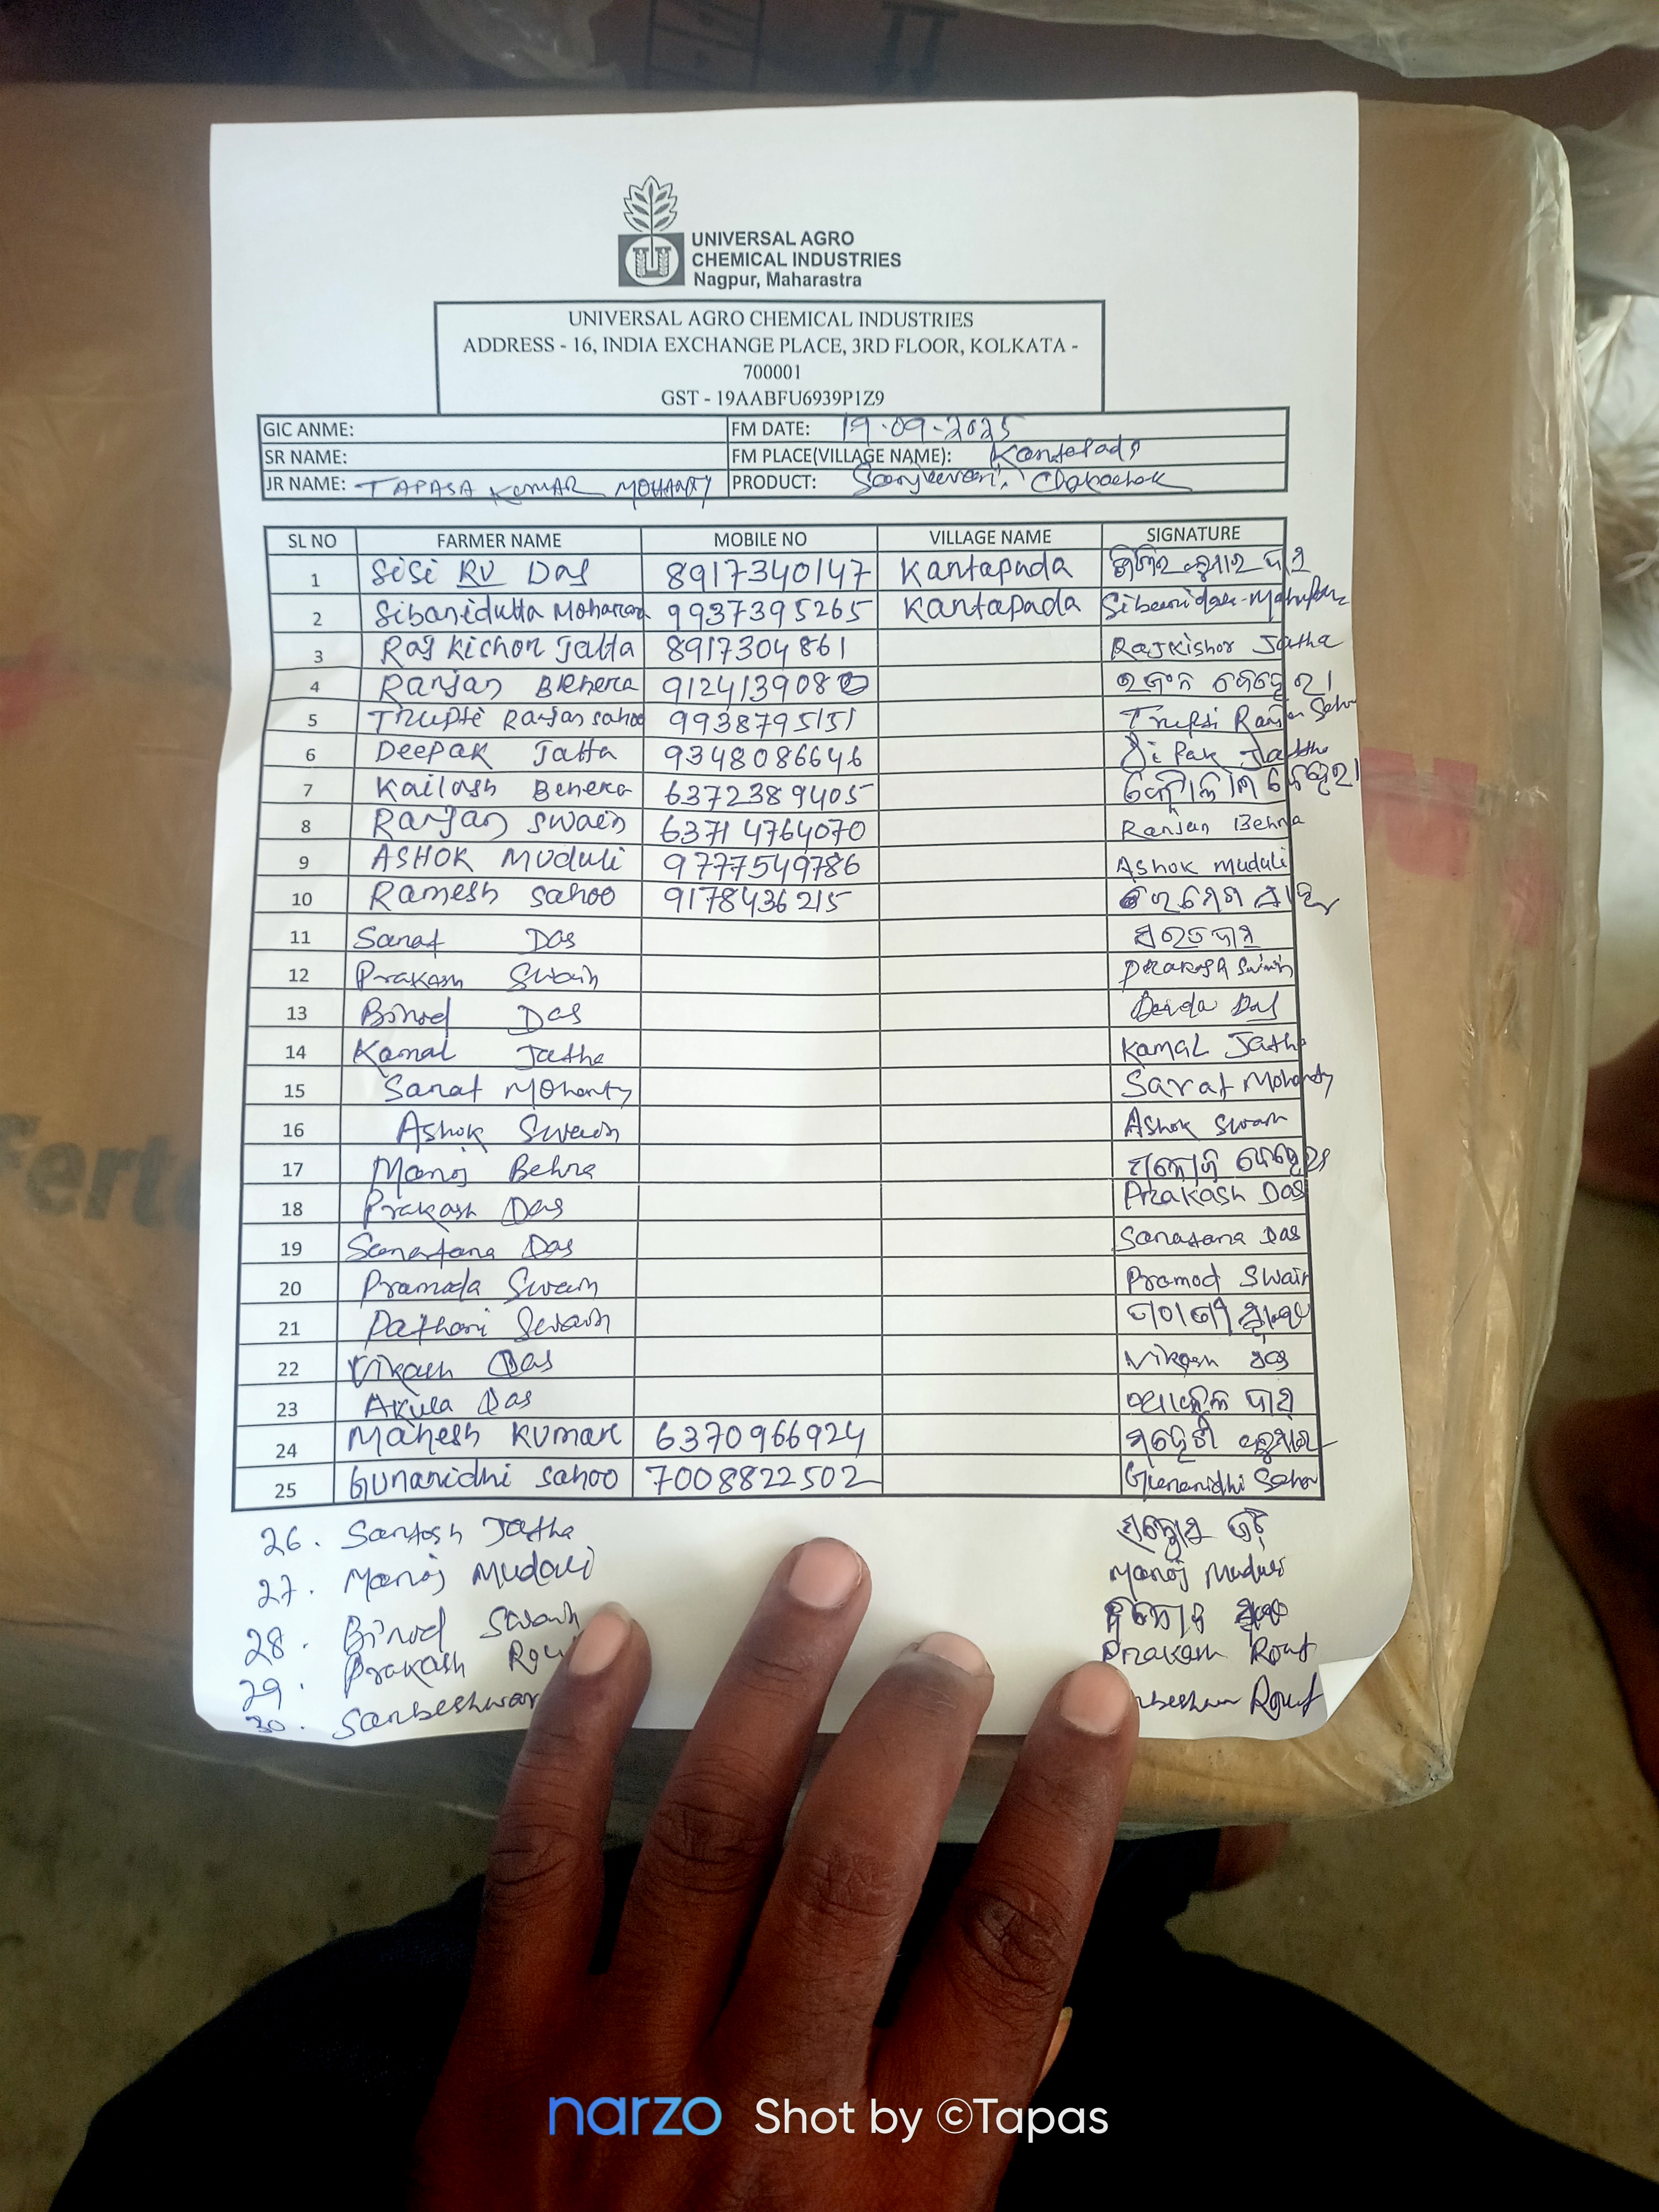 UNIVERSAL AGRO
CHEMICAL INDUSTRIES
Nagpur, Maharastra
UNIVERSAL AGRO CHEMICAL INDUSTRIES
ADDRESS - 16, INDIA EXCHANGE PLACE, 3RD FLOOR, KOLKATA -
700001
GST - 19AABFU6939P1Z9
GIC ANME: FM DATE: 19-09-2025
SR NAME: FM PLACE(VILLAGE NAME): Kantapada
JR NAME: TAPASA KUMAR MOHANTY PRODUCT: Sanjeevani,
SL NO FARMER NAME MOBILE NO VILLAGE NAME SIGNATURE
1 SiSi RU Das 8917340147 Kantapada
2 Sibanidutta 9937395265 Kantapada
3 Raj Kichor Jatta 8917304861 Rajkishor Jatha
4 Ranjan Behera 912413908 ରଞ୍ଜନ ବେହେରା
5 Trupti Ranjan Sahoo 9938795151 Trupti Ranjan Sahoo
6 Deepak Jatta 9348086646 Dipak Jattha
7 Kailash Behera 6372389405 ବେହେରା
8 Ranjan Swain 6371 4764070 Ranjan Behra
9 ASHOK Muduli 9777549786 Ashok muduli
10 Ramesh Sahoo 9178436215 ରମେଶ ସାହୁ
11 Sarat Das ଶରତ ଦାସ
12 Prakash Swain Prakash Swain
13 Binod Das Das
14 Kamal Jatha Kamal Jatha
15 Sarat Mohanty Sarat Mohanty
16 Ashok Swain Ashok Swain
17 Manoj Behra ମନୋଜ ବେହେରା
18 Prakash Das Prakash Das
19 Sanatana Das Sanatana Das
20 Pramoda Swain Pramod Swain
21 Pathani Swain ସ୍ୱାଇଁ
22 Vikash Das Vikash Das
23 Akula Das ଦାସ
24 Mahesh Kumar 6370966924 କୁମାର
25 Gunanidhi Sahoo 7008822502 Gunanidhi Sahoo
26. Santosh Jatha ସନ୍ତୋଷ
27. Manoj Mudali Manoj Muduli
28. Binod Swain ସ୍ୱାଇଁ
29. Prakash Rou Prakash Rout
30. Sarbeshwar Rout
Ferti
narzo Shot by ©Tapas